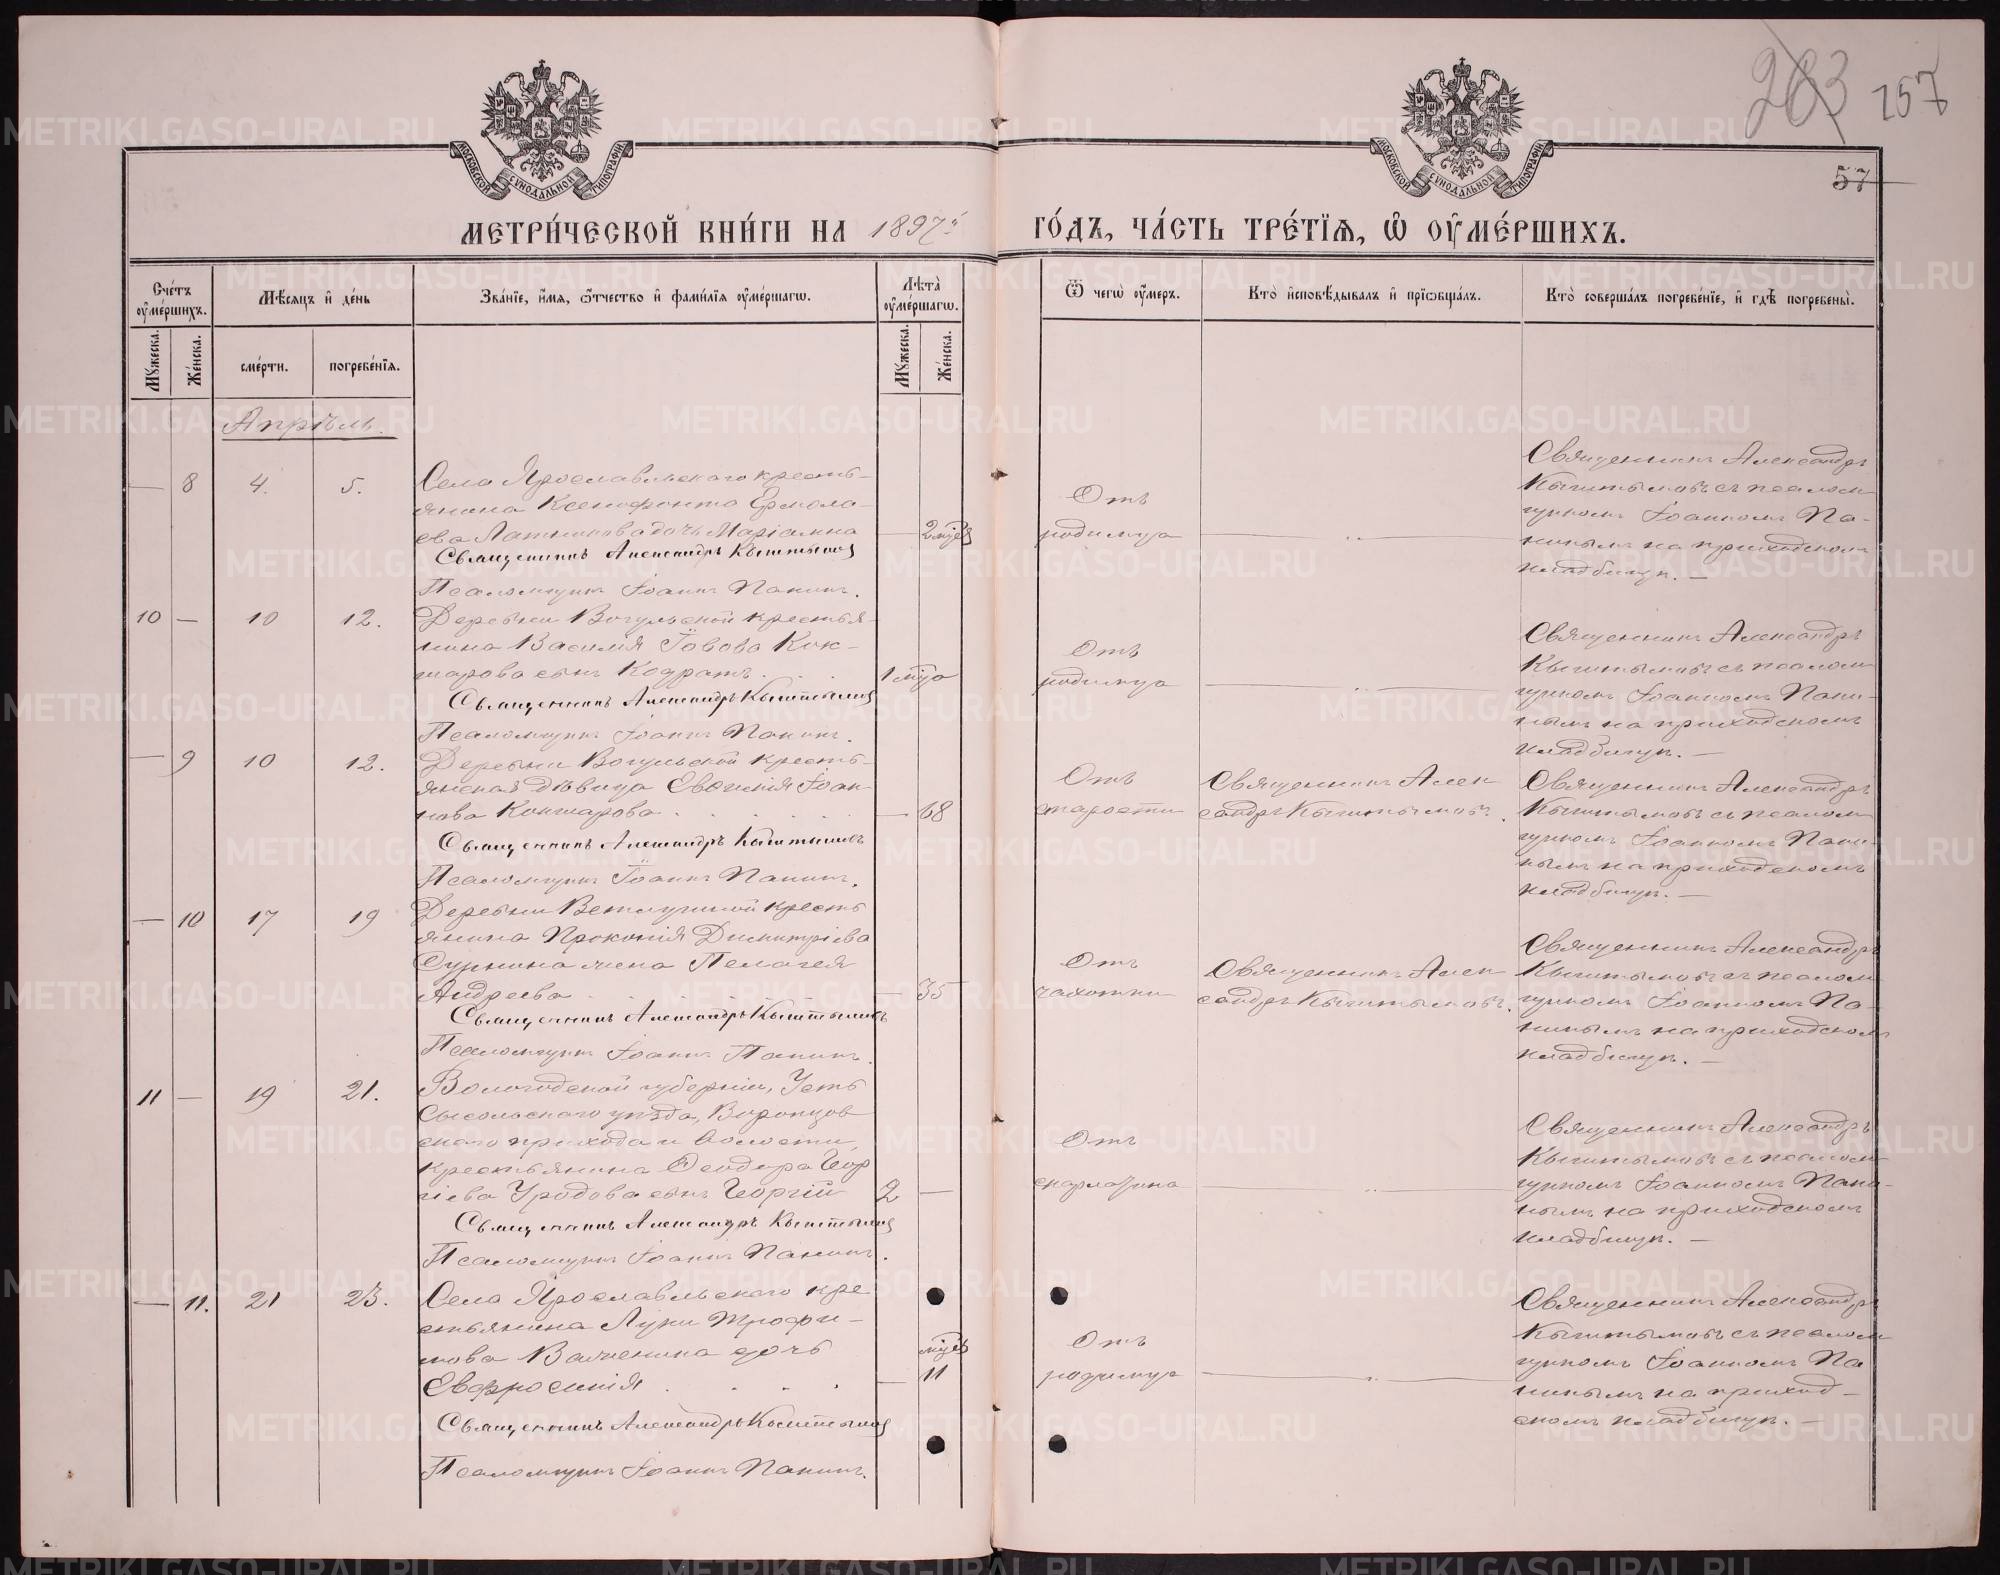 283 257
57
МОСКОВСКОЙ СѴНОДАЛЬНОЙ ТИПОГРАФІИ
МОСКОВСКОЙ СѴНОДАЛЬНОЙ ТИПОГРАФІИ
МЕТРИ́ЧЕСКОЙ КНИ́ГИ НА 1897й ГО́ДЪ, ЧА́СТЬ ТРЕ́ТІѦ, Ѡ ОУМЕ́РШИХЪ.
Сче́тъ оуме́ршихъ.
Мꙋжеска. Же́нска.
Мѣ́сяцъ и де́нь
сме́рти. погребе́нїѧ.
Зва́нїе, и́мѧ, ѻ́тчество и фами́лїѧ оуме́ршагѡ.
Лѣта̀ оуме́ршагѡ.
Мꙋжеска. Же́нска.
Ѿ чегѡ̀ оу́меръ.
Кто̀ исповѣ́дывалъ и прїѡбща́лъ.
Кто̀ соверша́лъ погребе́нїе, и гдѣ̀ погребены̀.
Апрѣль.
— 8 4. 5.
Села Ярославльскаго кресть-
янина Ксенофонта Ермола-
ева Латникова дочь Маріамна
— 2 мцев
Священникъ Александръ Кыштымов
Псаломщикъ Іоаннъ Панинъ.
Отъ
родимца
Священникъ Александръ
Кыштымовъ съ псалом
щикомъ Іоанномъ Па-
нинымъ на приходскомъ
кладбищѣ. —
10 — 10 12.
Деревни Вогульской крестья-
нина Василія Іовова Кок-
шарова сынъ Кодратъ . . .
1 мца
Священникъ Александръ Кыштымов
Псаломщикъ Іоаннъ Панинъ.
Отъ
родимца
Священникъ Александръ
Кыштымовъ съ псалом
щикомъ Іоанномъ Пани-
нымъ на приходскомъ
кладбищѣ. —
— 9 10 12.
Деревни Вогульской кресть-
янская дѣвица Евгенія Іоан-
нова Кокшарова . . . . .
— 68
Священникъ Александръ Кыштымовъ
Псаломщикъ Іоаннъ Панинъ.
Отъ
старости
Священникъ Алек
сандръ Кыштымовъ.
Священникъ Александръ
Кыштымовъ съ псалом
щикомъ Іоанномъ Пани-
нымъ на приходскомъ
кладбищѣ. —
— 10 17 19
Деревни Ветлужской кресть
янина Прокопія Димитріева
жена Пелагея
Андреева . . . . . .
— 35
Священникъ Александръ Кыштымовъ
Псаломщикъ Іоаннъ Панинъ.
Отъ
чахотки
Священникъ Алек
сандръ Кыштымовъ.
Священникъ Александръ
Кыштымовъ съ псалом
щикомъ Іоанномъ Па-
нинымъ на приходском
кладбищѣ. —
11 — 19 21.
Вологодской губерніи, Усть
Сысольскаго уѣзда, Воронцов
скаго прихода и волости,
крестьянина Ѳеодора Геор
гіева Уродова сынъ Георгій
2 —
Священникъ Александръ Кыштымов
Псаломщикъ Іоаннъ Панинъ.
Отъ
скарлатина
Священникъ Александръ
Кыштымовъ съ псалом
щикомъ Іоанномъ Пани-
нымъ на приходскомъ
кладбищѣ. —
— 11. 21 23.
Села Ярославльскаго кре
стьянина Луки Трофи-
мова дочь
Евфросинія . . . .
мцев
— 11
Священникъ Александръ Кыштымов
Псаломщикъ Іоаннъ Панинъ.
Отъ
родимца
Священникъ Александръ
Кыштымовъ съ псалом
щикомъ Іоанномъ Па
нинымъ на приход-
скомъ кладбищѣ. —
METRIKI.GASO-URAL.RU